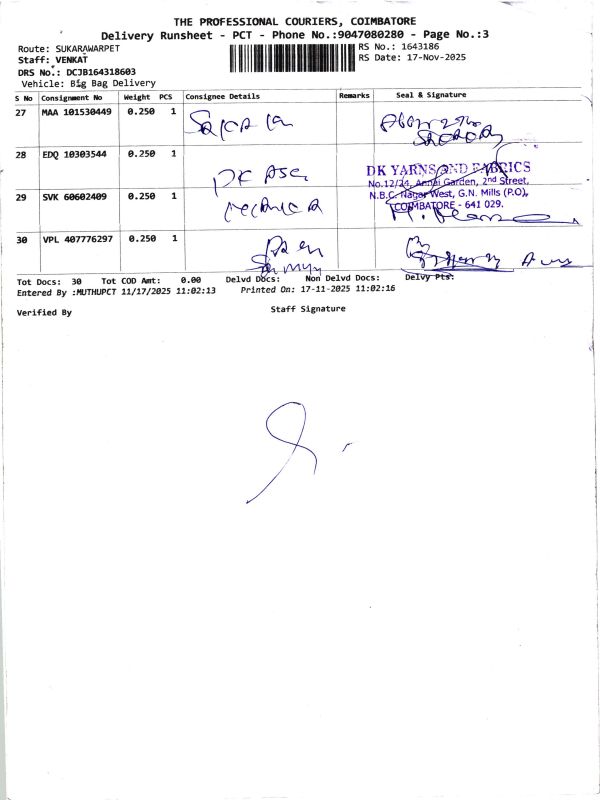 THE PROFESSIONAL COURIERS, COIMBATORE
Delivery Runsheet - PCT - Phone No.:9047080280 - Page No.:3
Route: SUKARAWARPET
Staff: VENKAT
DRS No.: DCJB164318603
Vehicle: Big Bag Delivery
RS No.: 1643186
RS Date: 17-Nov-2025
S No Consignment No Weight PCS Consignee Details Remarks Seal & Signature
27 MAA 101530449 0.250 1
28 EDQ 10303544 0.250 1
DK YARNS AND FABRICS
No.12/24, Annai Garden, 2nd Street,
29 SVK 60602409 0.250 1
N.B.C. Nagar West, G.N. Mills (P.O),
COIMBATORE - 641 029.
30 VPL 407776297 0.250 1
Tot Docs: 30 Tot COD Amt: 0.00 Delvd Docs: Non Delvd Docs: Delvy Pts:
Entered By :MUTHUPCT 11/17/2025 11:02:13 Printed On: 17-11-2025 11:02:16
Verified By Staff Signature